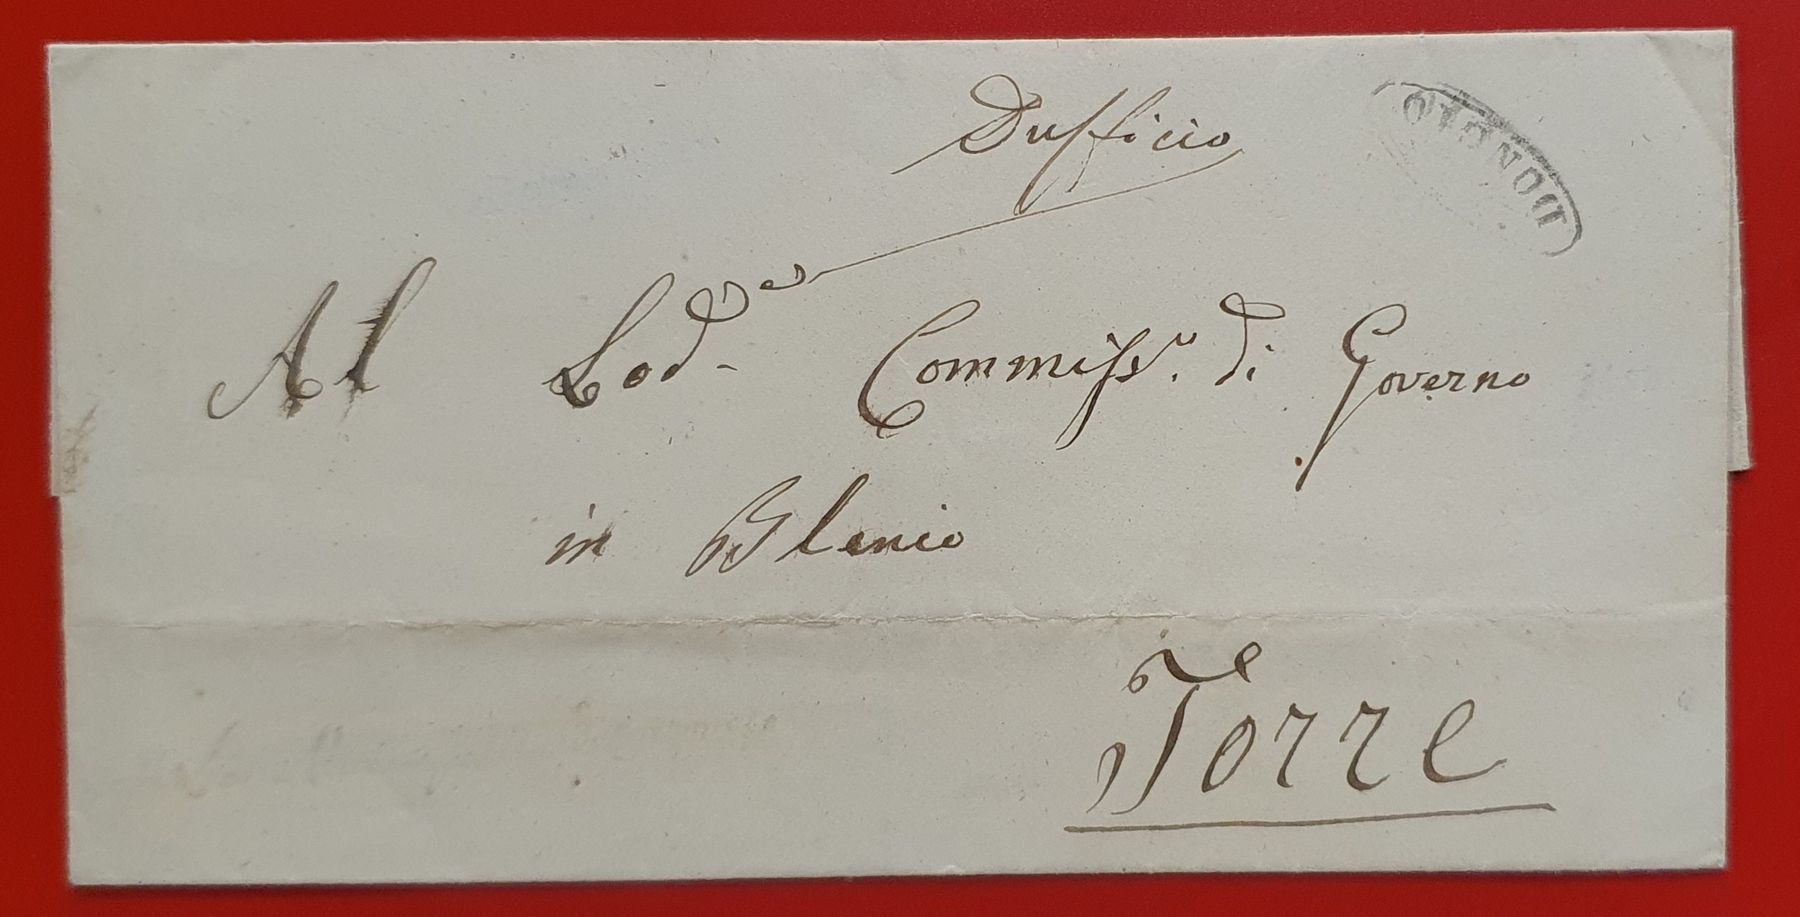 Dufficio
DONGIO
Al Lod.e Commissr.o di Governo
in Blenio
Torre